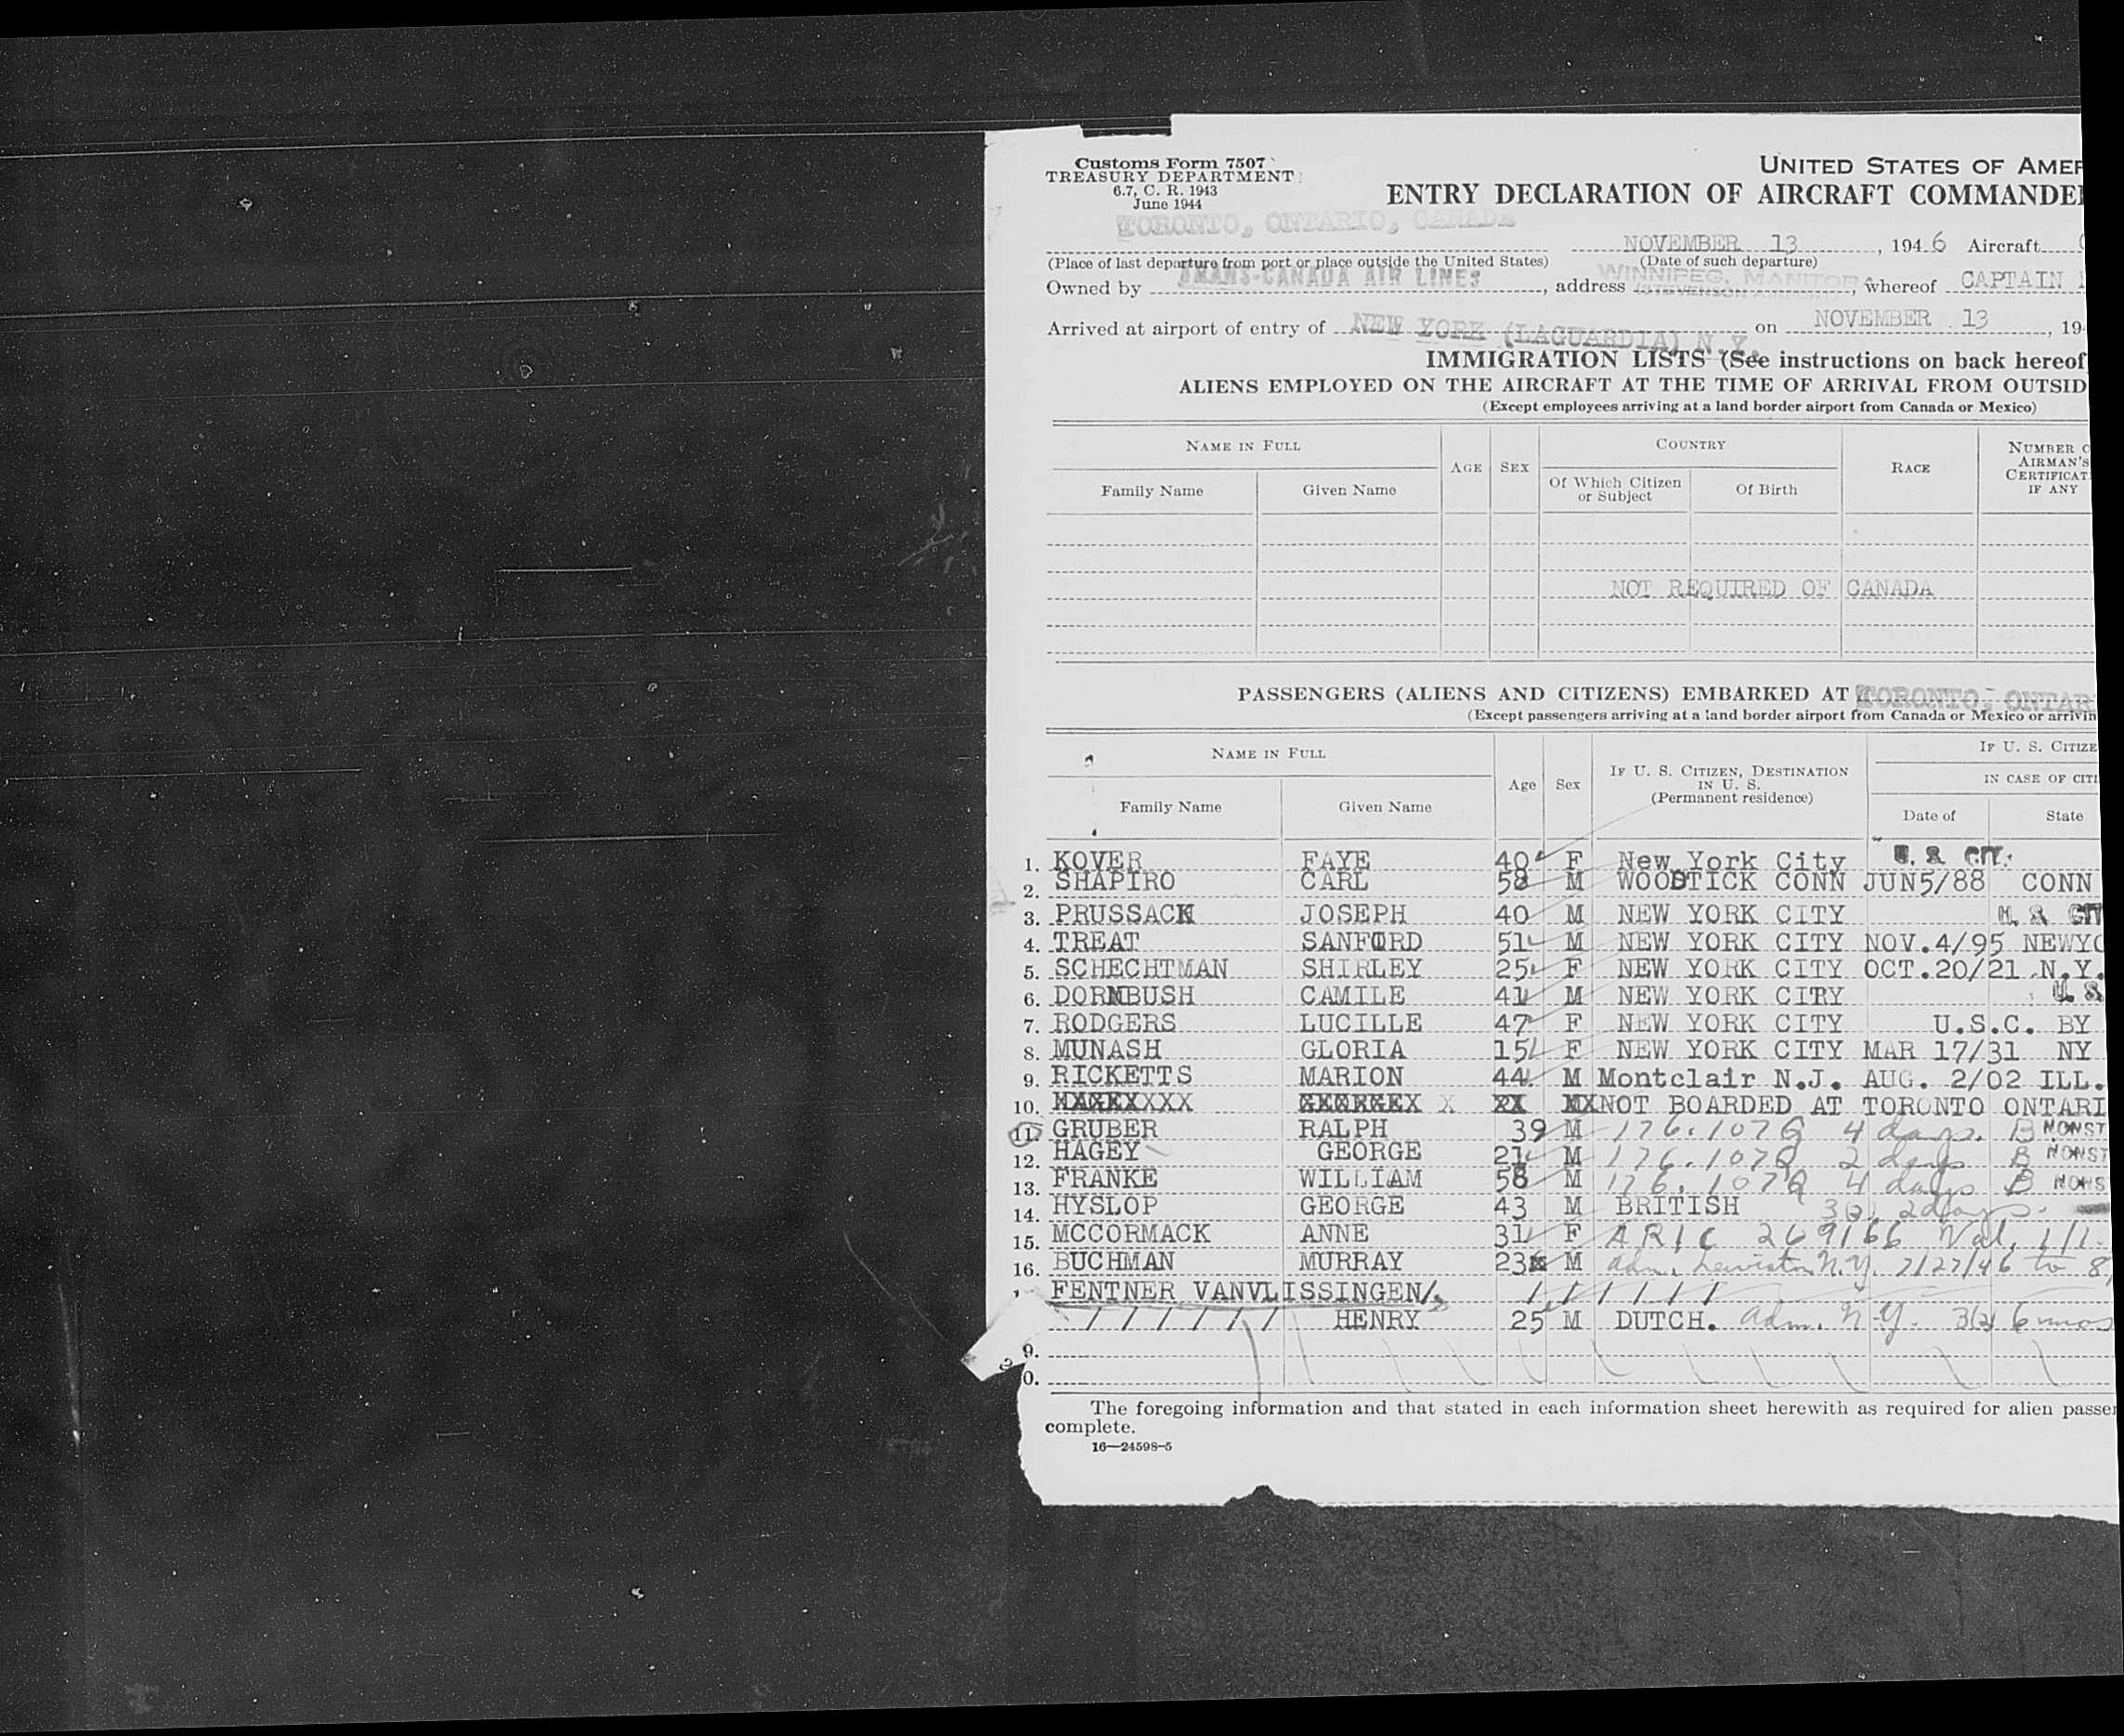 Customs Form 7507
TREASURY DEPARTMENT
6.7, C. R. 1943
June 1944
UNITED STATES OF AMER
ENTRY DECLARATION OF AIRCRAFT COMMANDER
TORONTO, ONTARIO, CANADA
NOVEMBER 13, 1946 Aircraft
(Place of last departure from port or place outside the United States) (Date of such departure)
Owned by TRANS-CANADA AIR LINES, address WINNIPEG, MANITOBA (STEVENSON AIRPORT), whereof CAPTAIN
Arrived at airport of entry of NEW YORK (LAGUARDIA) N.Y. on NOVEMBER 13, 19
IMMIGRATION LISTS (See instructions on back hereof
ALIENS EMPLOYED ON THE AIRCRAFT AT THE TIME OF ARRIVAL FROM OUTSID
(Except employees arriving at a land border airport from Canada or Mexico)
NAME IN FULL AGE SEX COUNTRY RACE NUMBER O
AIRMAN'S
CERTIFICAT
IF ANY
Family Name Given Name Of Which Citizen or Subject Of Birth
NOT REQUIRED OF CANADA
PASSENGERS (ALIENS AND CITIZENS) EMBARKED AT TORONTO, ONTAR
(Except passengers arriving at a land border airport from Canada or Mexico or arrivin
NAME IN FULL Age Sex IF U. S. CITIZEN, DESTINATION IN U. S. (Permanent residence) IF U. S. CITIZE
IN CASE OF CITI
Family Name Given Name Date of State
1. KOVER FAYE 40 F New York City U. S. CIT.
2. SHAPIRO CARL 58 M WOODTICK CONN JUN5/88 CONN
3. PRUSSACK JOSEPH 40 M NEW YORK CITY U. S. CIT
4. TREAT SANFORD 51 M NEW YORK CITY NOV.4/95 NEWYO
5. SCHECHTMAN SHIRLEY 25 F NEW YORK CITY OCT.20/21 N.Y.
6. DORNBUSH CAMILE 41 M NEW YORK CITRY U. S
7. RODGERS LUCILLE 47 F NEW YORK CITY U.S.C. BY
8. MUNASH GLORIA 15 F NEW YORK CITY MAR 17/31 NY
9. RICKETTS MARION 44 M Montclair N.J. AUG. 2/02 ILL.
10. NOT BOARDED AT TORONTO ONTARI
11. GRUBER RALPH 39 M 176.107Q 4 days. B NONST
12. HAGEY GEORGE 21 M 176.107Q 2 days B NONST
13. FRANKE WILLIAM 58 M 176.107Q 4 days B NONS
14. HYSLOP GEORGE 43 M BRITISH 3(2) 2days.
15. MCCORMACK ANNE 31 F ARIC 269166 Val. 1/1
16. BUCHMAN MURRAY 23 M adm. Lewiston N.Y. 7/27/46 to 8
FENTNER VANVLISSINGEN/ / / / / / /
/ / / / / / / HENRY 25 M DUTCH. adm. N.Y. 3(2) 6 mos
9.
0.
The foregoing information and that stated in each information sheet herewith as required for alien passe
complete.
16—24598-5